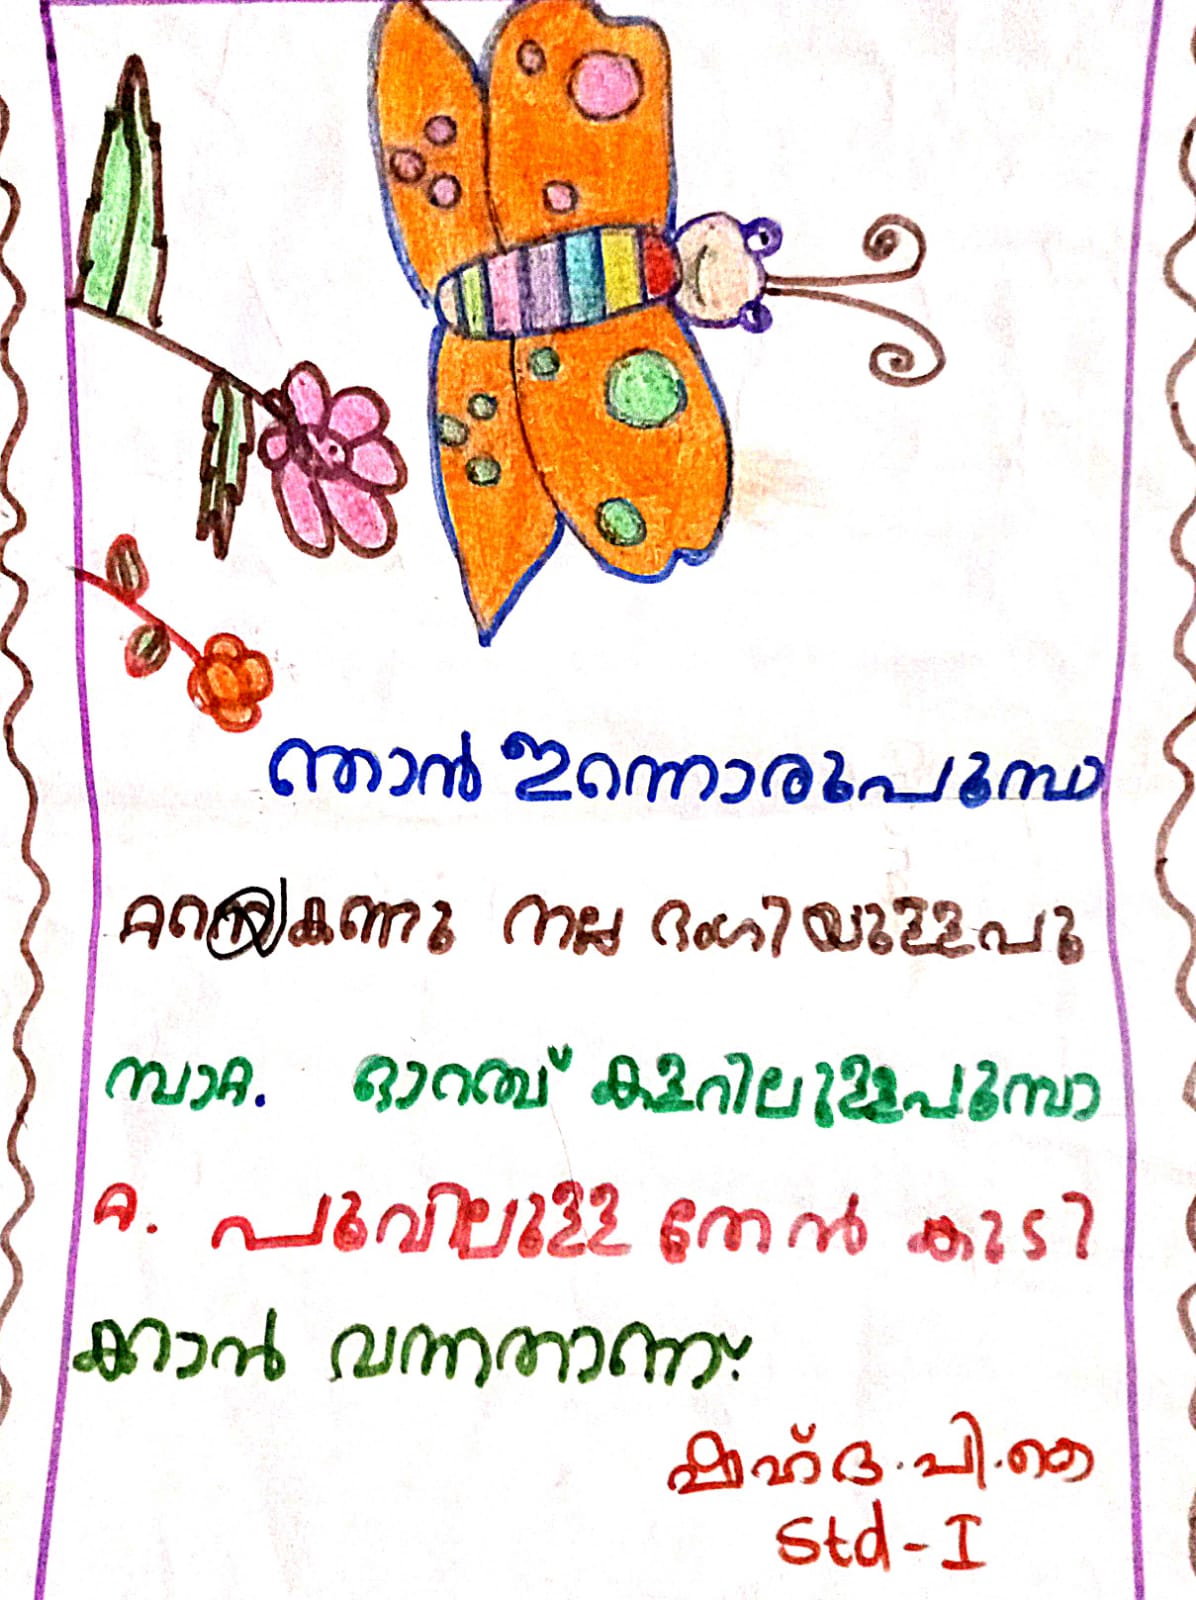 ഞാൻ ഇന്നൊരുപൂമ്പാ
റ്റയെകണ്ടു നല്ല ഭംഗിയുള്ളപൂ
മ്പാറ്റ. ഓറഞ്ച് കളറിലുള്ളപൂമ്പാ
റ്റ. പൂവിലുള്ള തേൻ കുടി
ക്കാൻ വന്നതാണ്.
ഷഹ്ദ.പി.കെ
Std-I